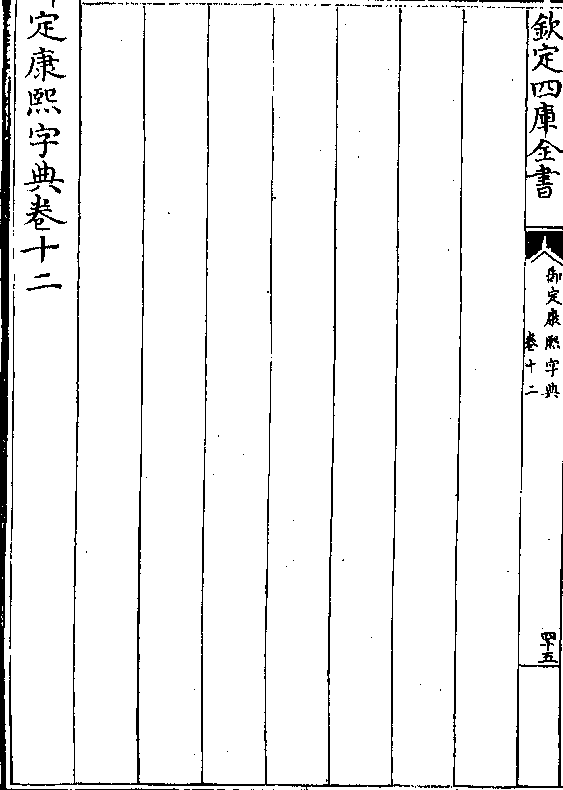 欽定四庫全書
御定康熙字典
卷十二
四十五
定康熙字典卷十二